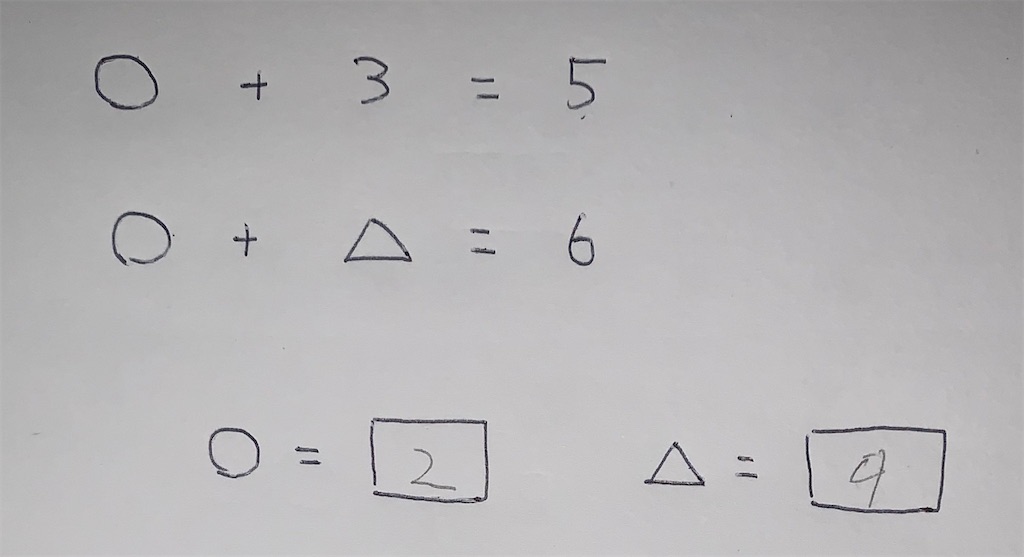 ○ + 3 = 5
○ + △ = 6
○ = 2 △ = 9